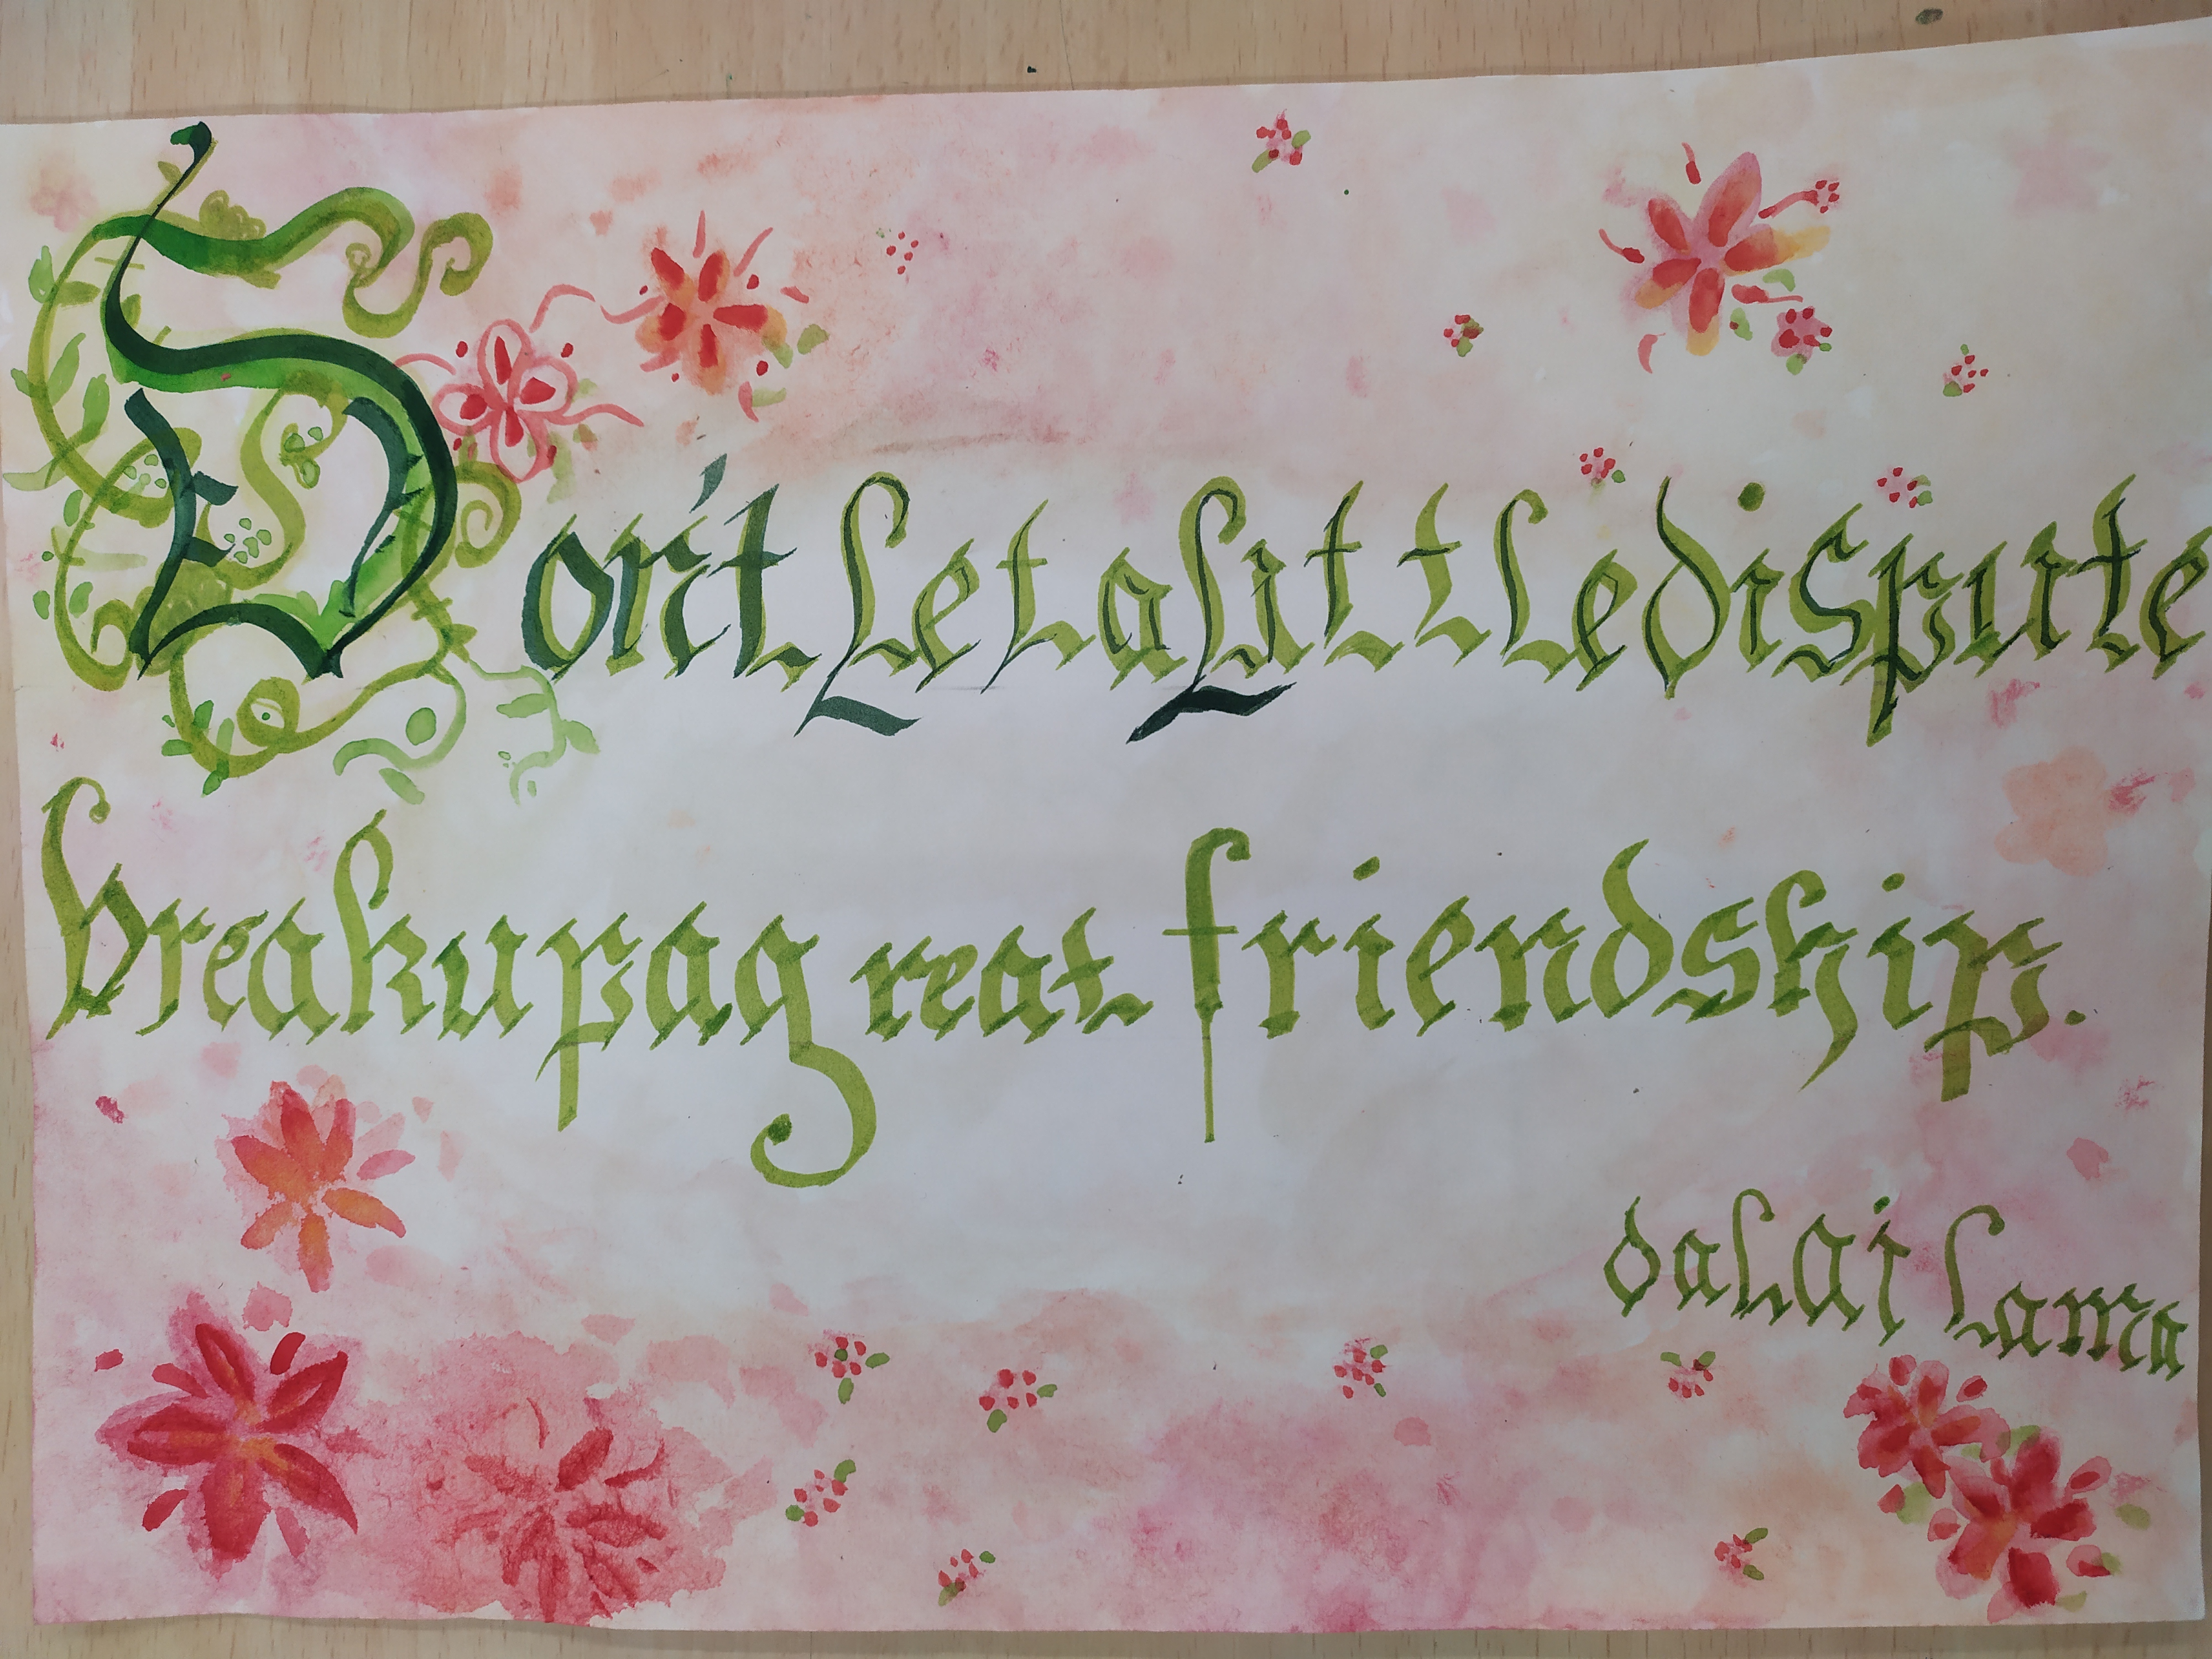 Don't Let a Little dispute
break up a great friendship.
dalai lama